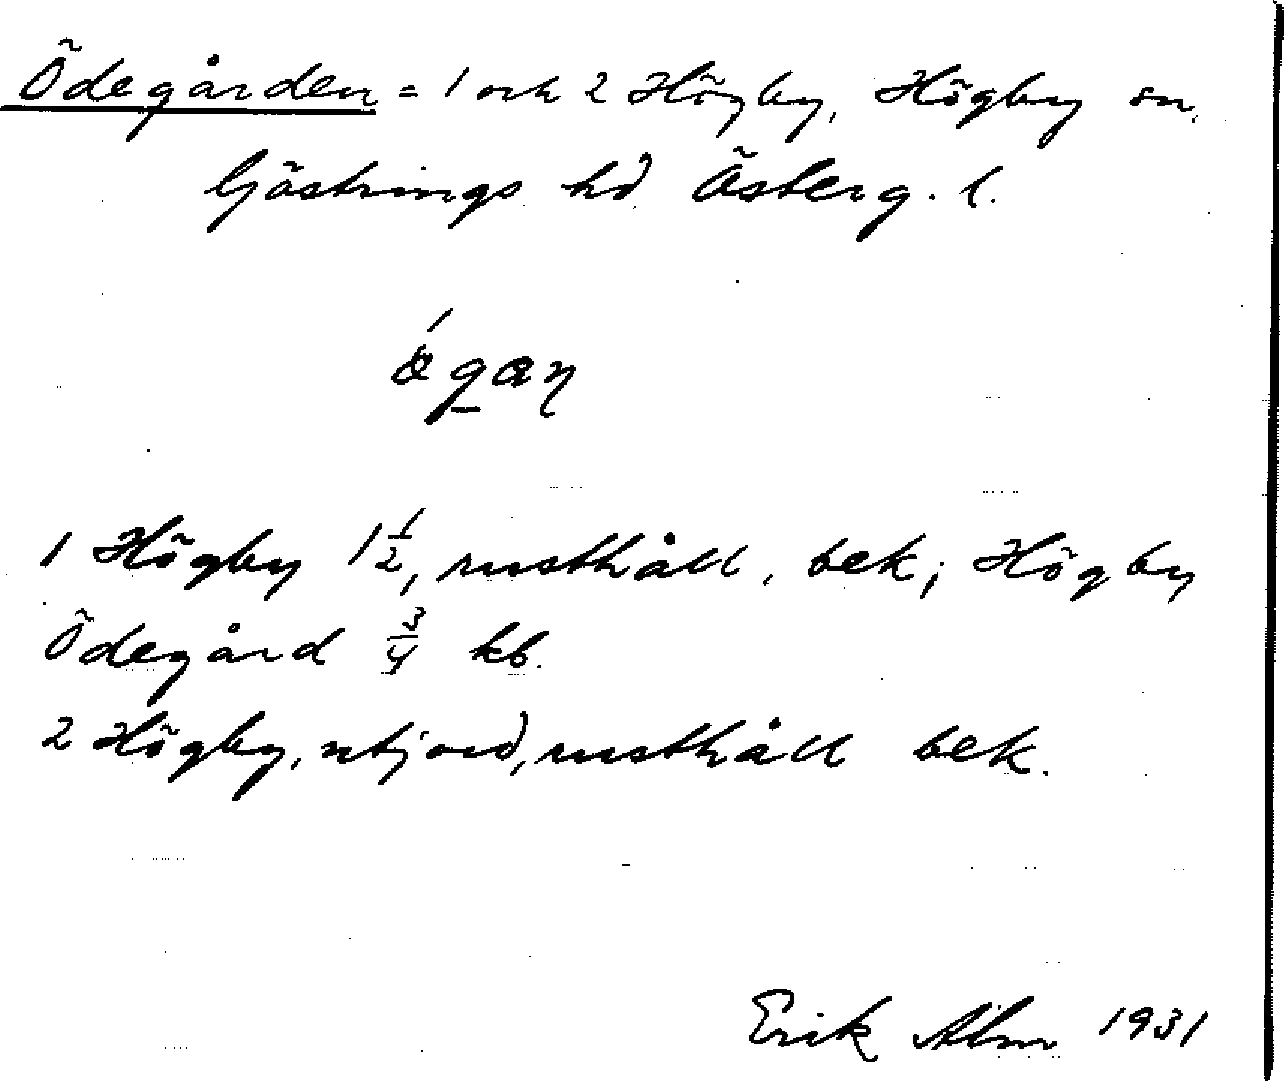 Ödegården = 1 och 2 Högby, Högby sn,
Göstrings hd Österg. l.
1 Högby 1 1/2, rusthåll, bek; Högby
Ödegård 3/4 kb.
2 Högby, utjord, rusthåll bek.
Erik Alm 1931